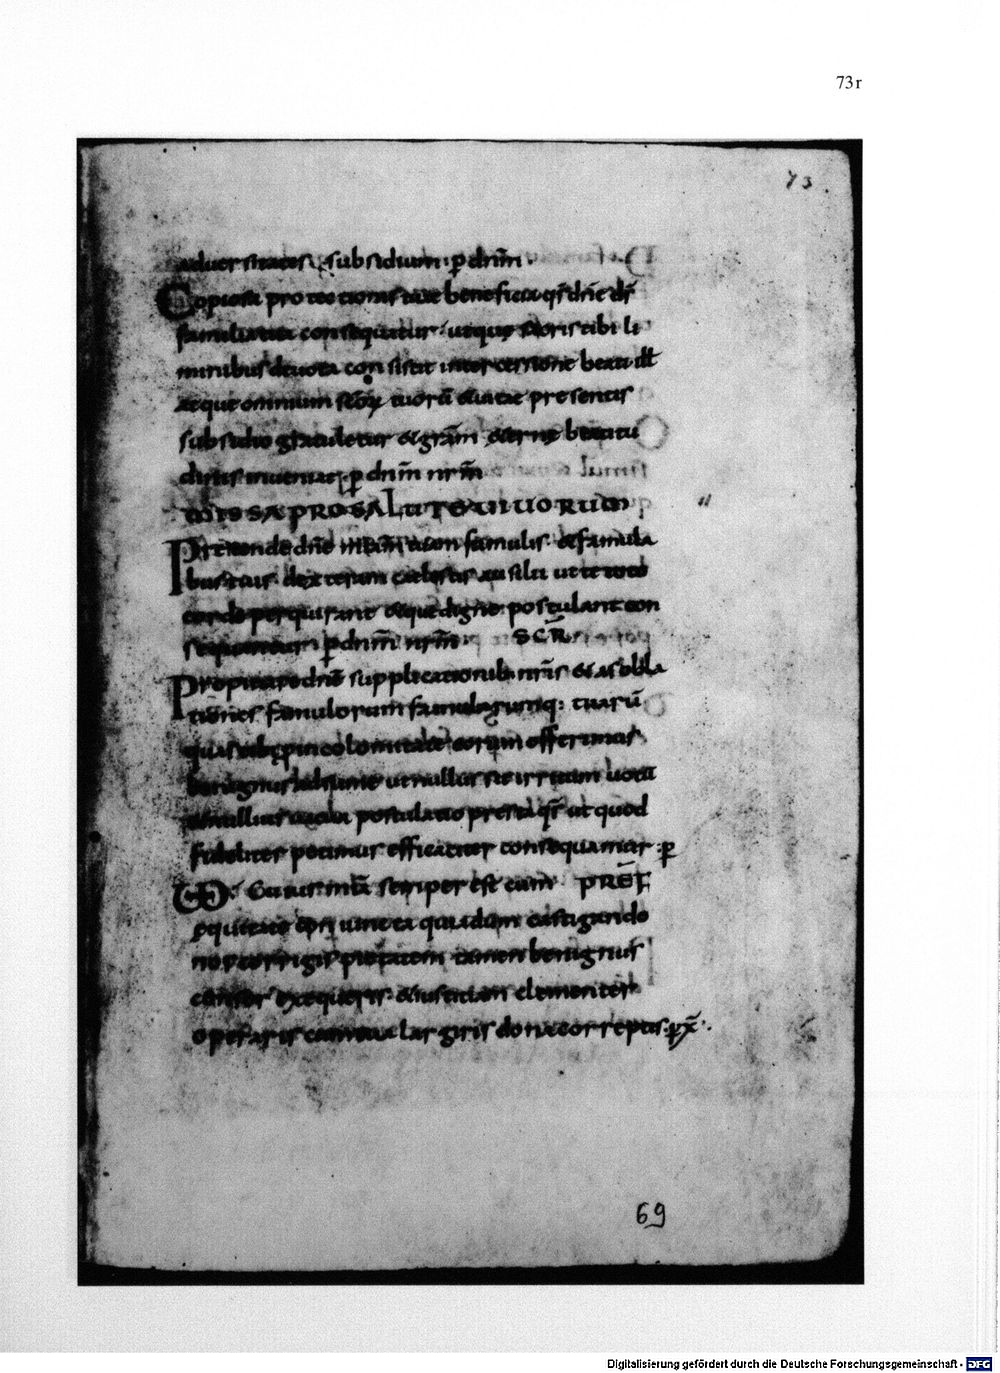 73r
73
aduersitates subsidium· p̄ dnm̄
Copiosa protectionis tuae beneficia qs̄ dnē ds̄
familia tua consequatur· utque
minibus deuota consistit intercessione beati ill̄
atque omnium scōꝝ tuorū & uitae presentis
subsidio gratuletur & grām aeterne beatitu
dinis inueniat· p̄ dnm̄ nrm̄
MISSA PRO SALUTE UIUORUM
Pretende dnē mīam tuam famulis· & famula
bus tuis· dexteram caelestis auxilii ut te toto
corde perquirant &que digne postulant con
sequantur p̄ dnm̄ nrm̄· SCR̄
Propitiare dnē supplicationib· nrīs & as obla
tiones famulorum famularumq: tuarū
quas tibi p incolomitate eorum offerimus·
benignus adsume ut nullius sit irritum uotū
& nullius uacua postulatio presta qs̄ ut quod
fideliter petimus efficaciter consequamur· p̄
Cuius
semper est cum PREF̄
equitate coniuncta quiadum castigando
nos corrigis pietatem tamen benignus
censor exequeris· & iustitiam clementer
operaris largiris correptis· p̄ x̄p̄·
69
Digitalisierung gefördert durch die Deutsche Forschungsgemeinschaft - DFG